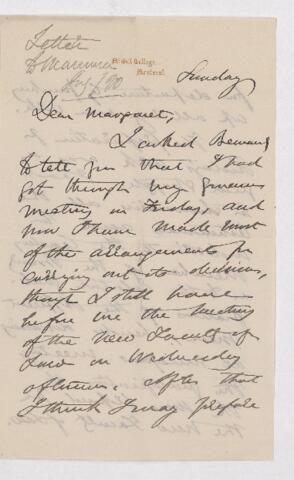 Letter
to Mamma
Aug /90
McGill College,
Montreal.
Sunday
Dear Margaret,
I asked Bernard
to tell you that I had
got through my
meeting on Friday, and
now I have made most
of the arrangements for
carrying out its decisions,
though I still have
before me the meeting
of the new Faculty of
Law on Wednesday
afternoon. After that
I think I may prepare